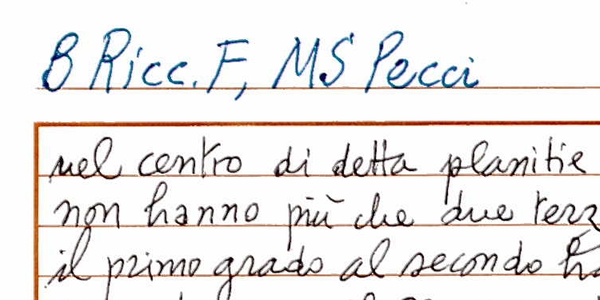 B Ricc. F, MS Pecci
nel centro di detta planitie
non hanno più che due terz
il primo grado al secondo ha